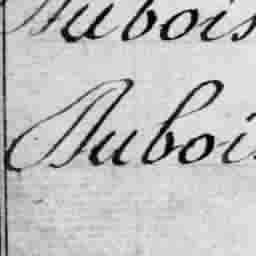 Dubois
Dubois